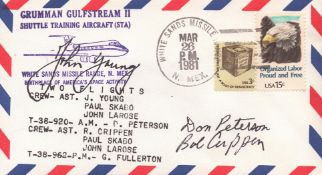 GRUMMAN GULFSTREAM II
SHUTTLE TRAINING AIRCRAFT (STA)
John Young
WHITE SANDS MISSILE RANGE, N. MEX.
BIRTHPLACE OF AMERICA'S SPACE ACTIVITY
TWO FLIGHTS
CREW- AST. J. YOUNG
PAUL SKABO
JOHN LAROSE
T-38-920- A.M. - D. PETERSON
CREW- AST. R. CRIPPEN
PAUL SKABO
JOHN LAROSE
T-38-962-P.M.- G. FULLERTON
WHITE SANDS MISSILE
MAR
26
P.M.
1981
N. MEX.
Organized Labor
Proud and Free
USA 15c
Don Peterson
Bob Crippen